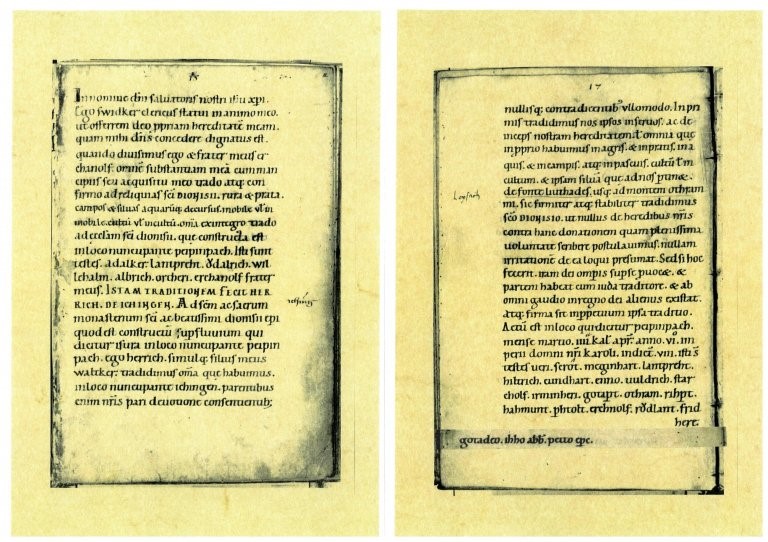 In nomine dñi saluatoris nostri ihu xpi.
Ego swidker clericus statui in animo meo.
ut offerrem deo ppriam hereditatē meam.
quam mihi dñs concedere dignatus est.
quando diuisimus ego & frater meus er
chanolf. omnē substantiam meā cum man
cipiis seu acquisitu meo trado atq; con
firmo ad reliquias scī DIONISII. rura & prata.
campos & siluas aquarūq; decursus. mobile ul in
mobile. cultū ul incultū. oma ex integro trado
ad ecclam scī dionisii. que constructa est
in loco nuncupante peipinpach. Isti sunt
testes. adalker. lantprecht. Ödalrich. wil
lehalm. albrich. orthen. erchanolf frater
meus. ISTAM TRADITIONEM FECIT HER
RICH. DE ICHINGEN. Ad scm ac sacrum
monasterium scī ac beatissimi dionisii epi
quod est constructū sup fluuium qui
dicitur isura in loco nuncupante peipin
pach. ego herrich. simulq; filius meus
waltker. tradidimus oma que habuimus.
in loco nuncupante ichingen. parentibus
enim nris pari deuotione consentientib;
17
nullisq; contradicentib; ullomodo. In pri
mis tradidimus nos ipsos in seruos. ac de
inceps nostram hereditatem. ul omnia que
in pprio habuimus in agris. & in pratis. in a
quis. & in campis. atq; in pascuis. cultū ul in
cultum. & ipsam siluā que ad nos ptinet.
de fonte liuthades. usq; ad montem othram
ni. sic firmiter atq; stabiliter tradidimus
scō DIONISIO. ut nullus de heredibus nris
contra hanc donationem quam plenissima
uoluntate scribere postulauimus. nullam
irritationē de ea loqui presumat. Sed si hoc
fecerit. iram dei omnipotis
partem habeat cum iuda traditore. & ab
omni gaudio in regno dei alienus existat.
atq; firma sit in ppetuum ipsa traditio.
Actū est in loco qui dicitur peipinpach.
mense martio. iiii. kal. apr. anno. vi. im
perii domni nri karoli. indict. viii. isti s
testes ueri. serot. meginhart. lantprecht.
hiltrich. cundhart. enno. uuldrich. star
cholf. irminheri. gotapt. othram. rihpt.
hahmunt. phtolt. erchnolf. rödlant. frid
heri.
gotadeo. ihho abb. petto epc.